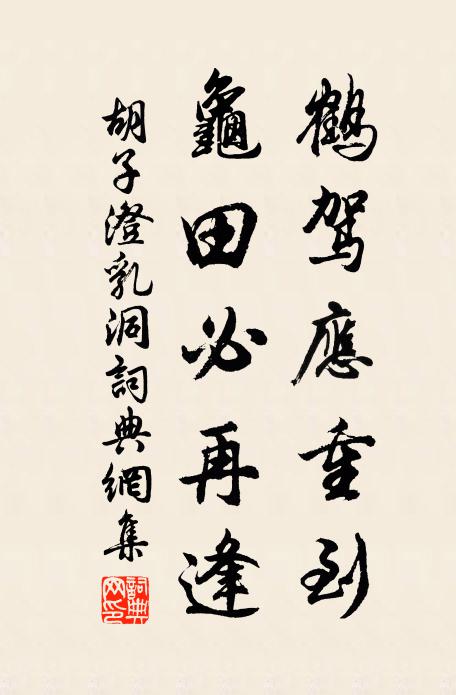 鶴駕應重到
龜田必再逢
胡子澄乳洞詞典網集
詞典網印